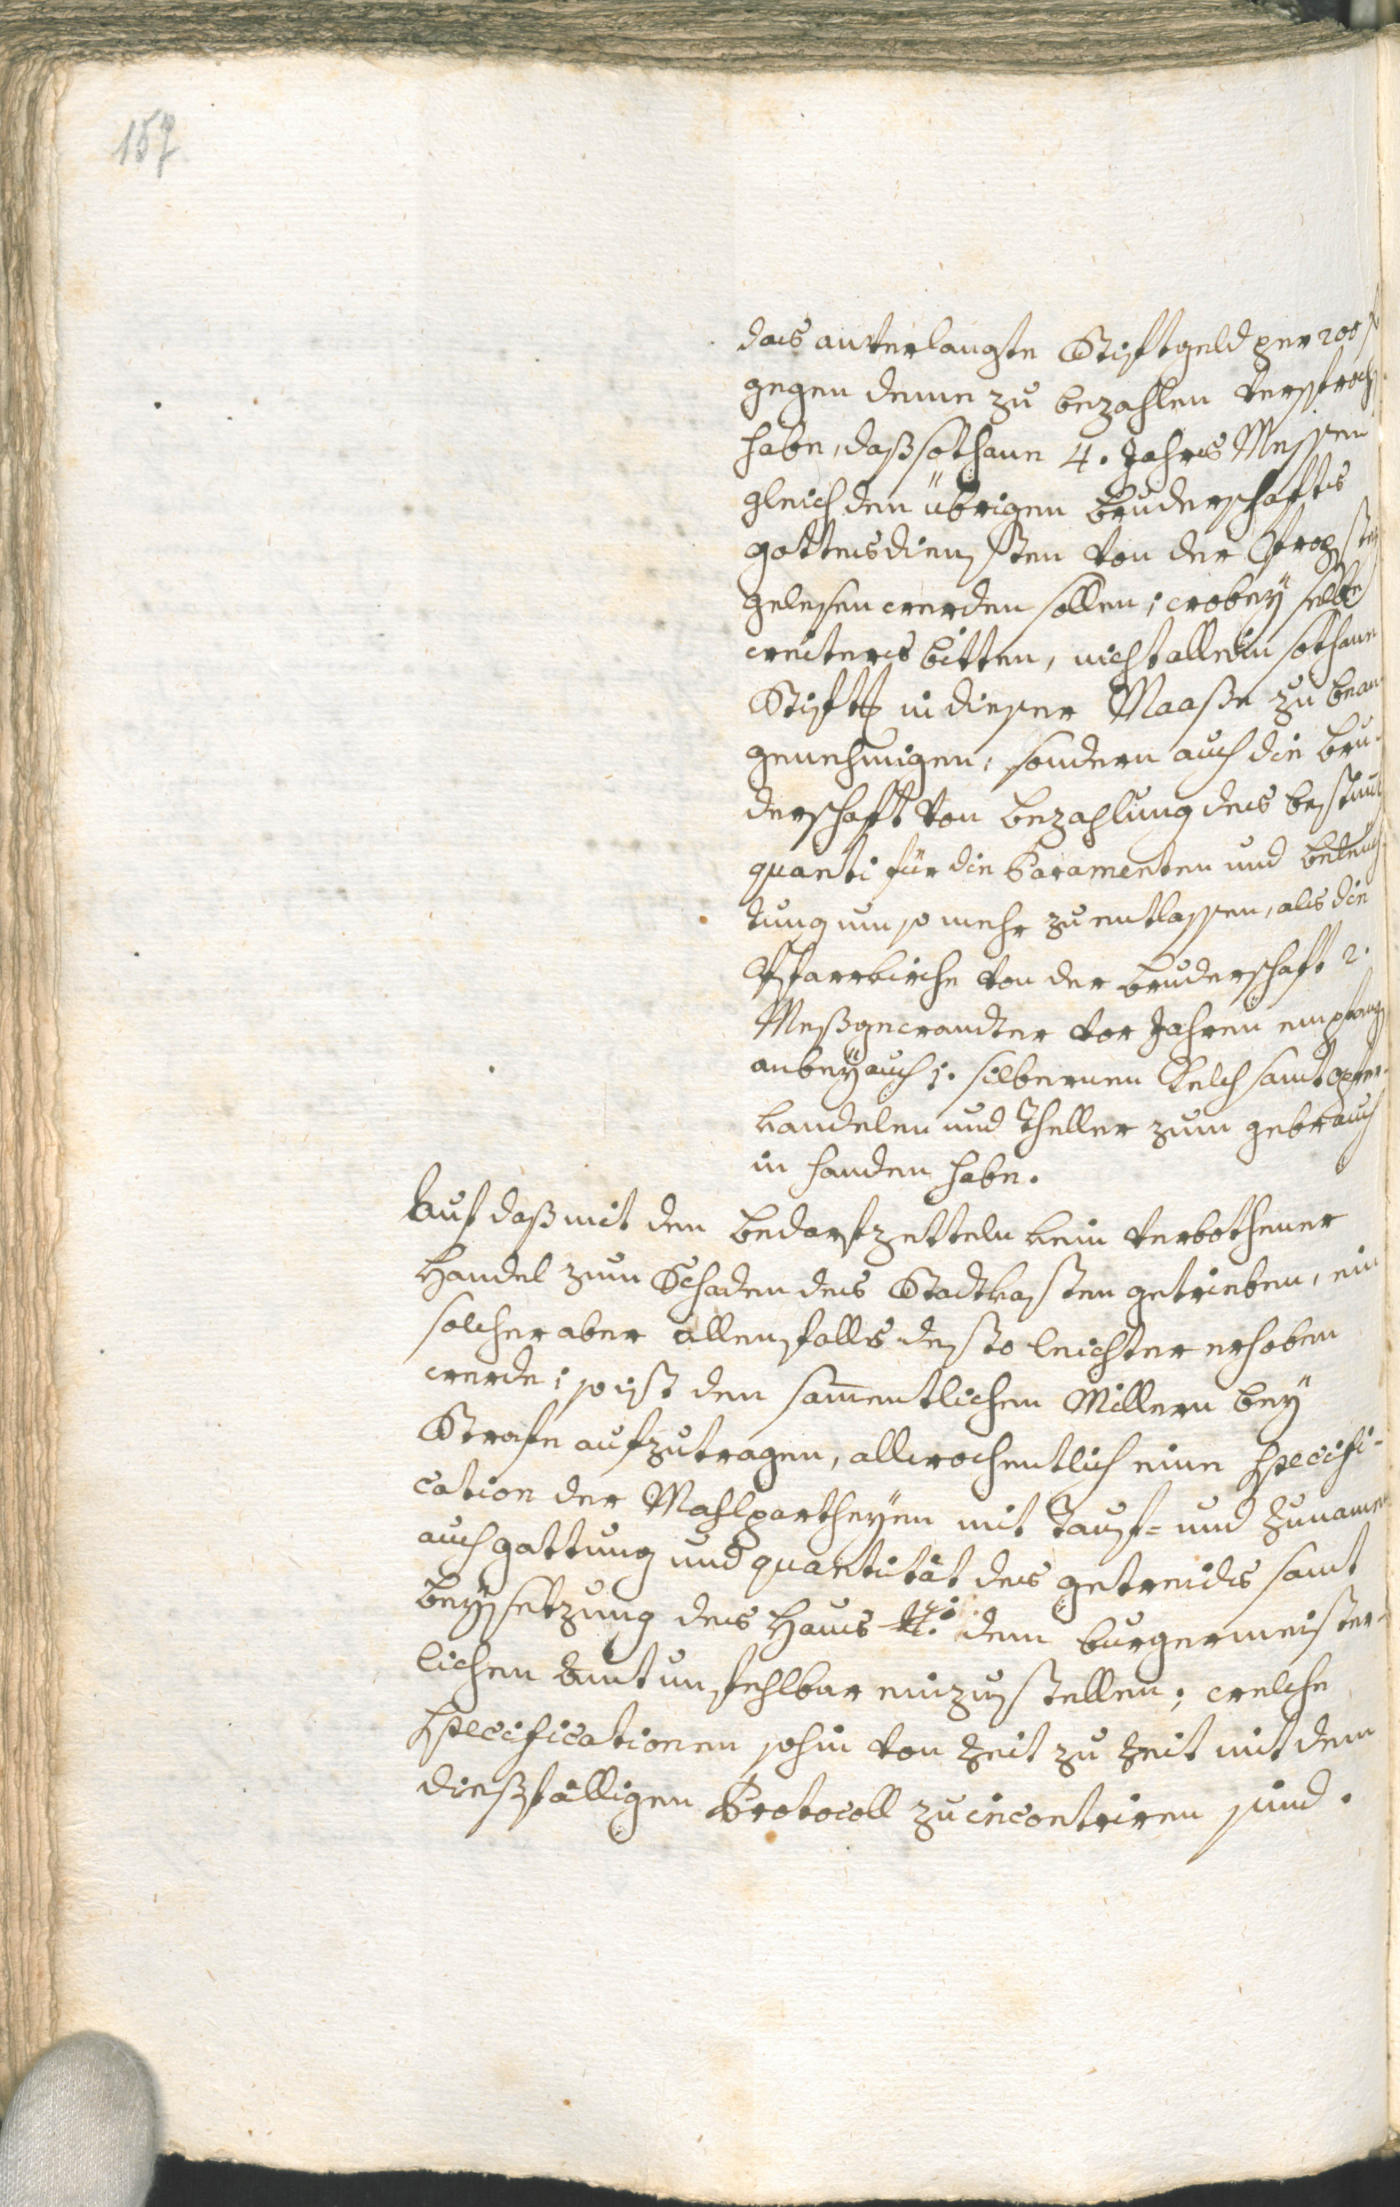 157
das anverlangte Stiftgeld per 200 f
gegen deme zu bezahlen versproch
habe, daß sothane 4. Jahrs Messen
gleich den übrigen bruderschafts
gottesdiensten von der Probstey
gelesen werden sollen; wobey selbe
weiters bitten, nicht allein sothane
Stiftg in dieser Maaße zu bean
genehmigen, sondern auch die bru-
derschaft von bezahlung des bestimt
quanti für die Paramenten und beleuch
tung um so mehr zu entlassen, als die
Pfarrkirche von der bruderschaft 2.
Meßgewandter vor Jahren empfang
anbey auch 1. silbernen Kelch samt opfer-
kandelen und Theller zum gebrauch
in handen habe.
Auf daß mit den bedarfzetteln kein verbothener
Handel zum Schaden des Stadtkasten getrieben, ein
solcher aber allenfalls desto leichter erhoben
werde; so ist den sam̄entlichen Millern bey
Strafe aufzutragen, allwochentlich eine specifi-
cation der Mahlpartheyen mit Tauf- und Zunamen
auch gattung und quantität des getreides samt
beysetzung des Haus No. dem burgermeister-
lichen Amt unfehlbar einzustellen; welche
specificationen sohin von Zeit zu Zeit mit dem
dießfälligen Protocoll zu incontriren sind.